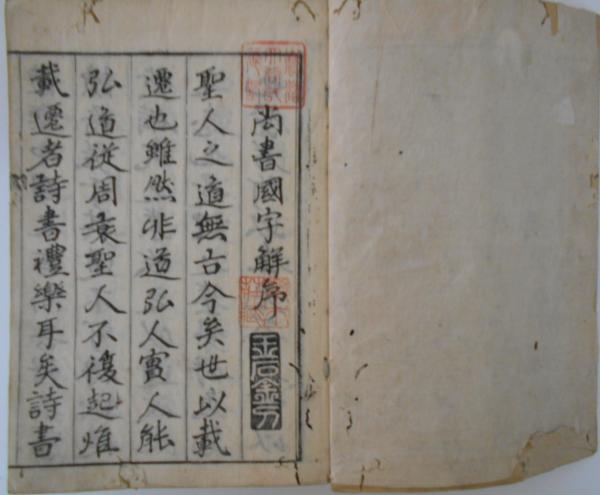 尚書國字解序
聖人之道無古今矣世以載
遷也雖然非道弘人實人能
弘道從周衰聖人不復起惟
載遷者詩書禮樂耳矣詩書